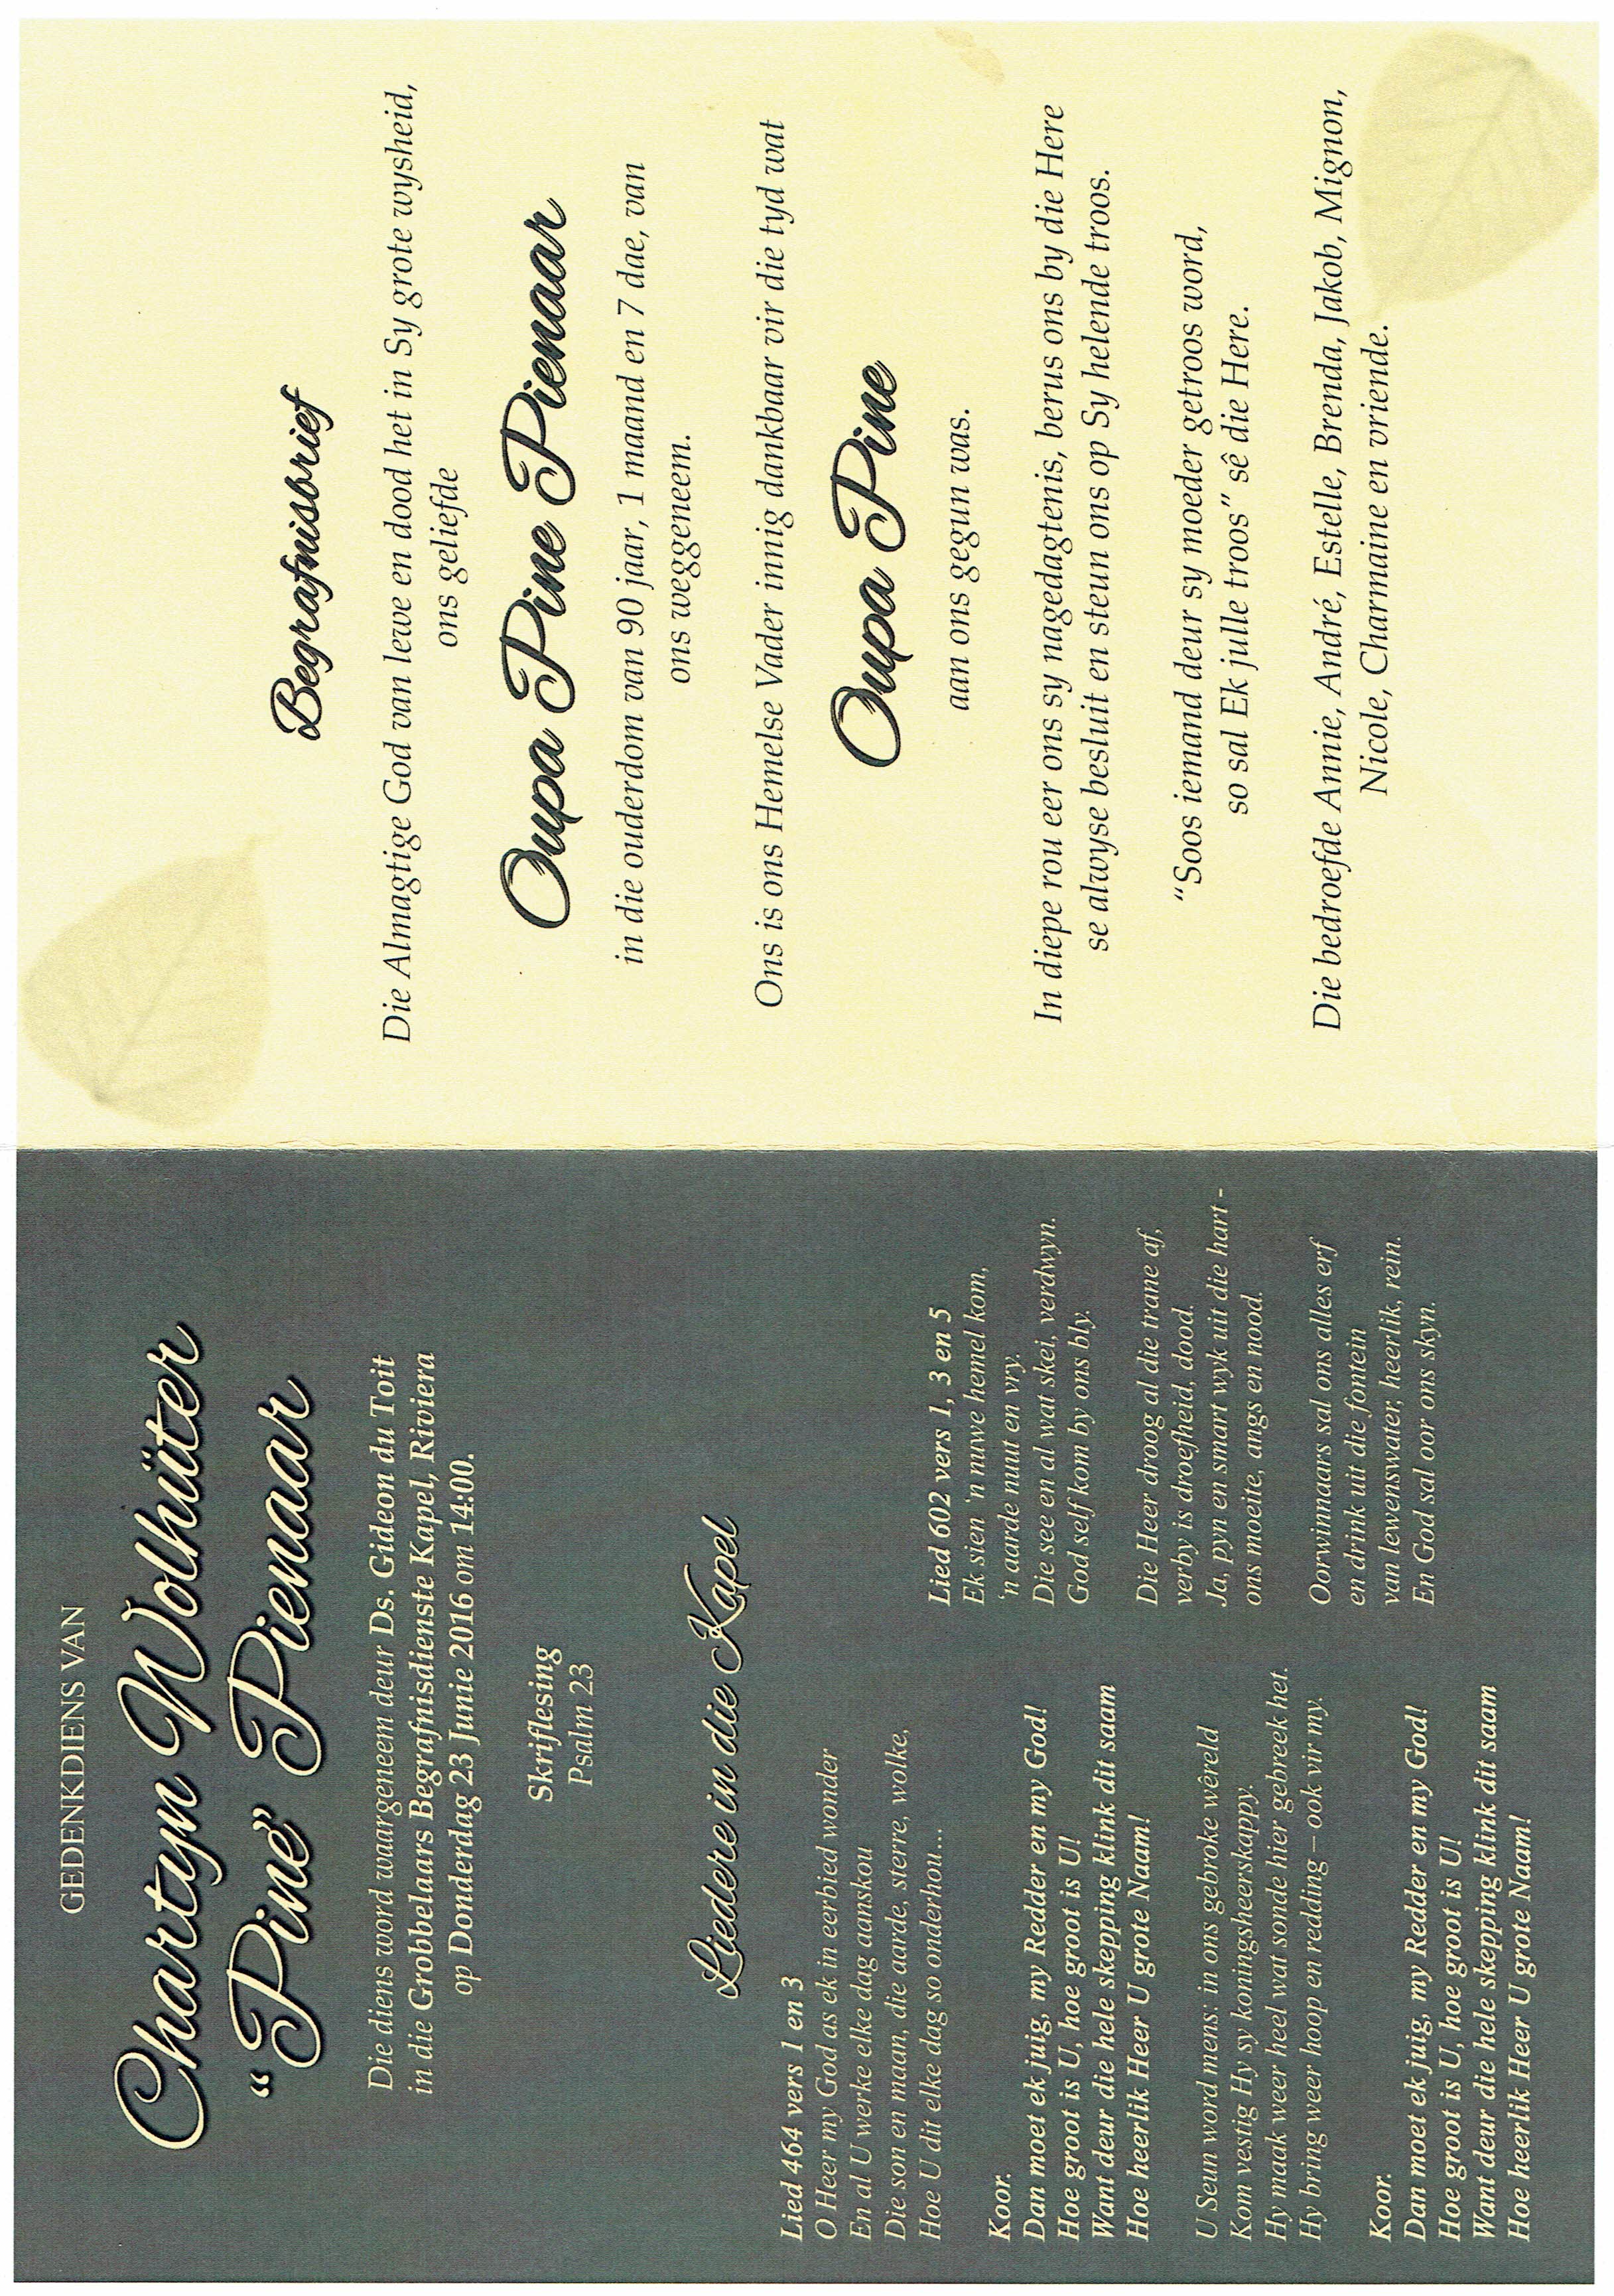 GEDENKDIENS VAN
Chartyn Wolhüter
“Pine” Pienaar
Die diens word waargeneem deur Ds. Gideon du Toit
in die Grobbelaars Begrafnisdienste Kapel, Riviera
op Donderdag 23 Junie 2016 om 14:00.
Skriflesing
Psalm 23
Liedere in die Kapel
Lied 464 vers 1 en 3
O Heer my God as ek in eerbied wonder
En al U werke elke dag aanskou
Die son en maan, die aarde, sterre, wolke,
Hoe U dit elke dag so onderhou...
Koor.
Dan moet ek juig, my Redder en my God!
Hoe groot is U, hoe groot is U!
Want deur die hele skepping klink dit saam
Hoe heerlik Heer U grote Naam!
U Seun word mens: in ons gebroke wêreld
Kom vestig Hy sy koningsheerskappy.
Hy maak weer heel wat sonde hier gebreek het.
Hy bring weer hoop en redding – ook vir my.
Koor.
Dan moet ek juig, my Redder en my God!
Hoe groot is U, hoe groot is U!
Want deur die hele skepping klink dit saam
Hoe heerlik Heer U grote Naam!
Lied 602 vers 1, 3 en 5
Ek sien 'n nuwe hemel kom,
'n aarde nuut en vry.
Die see en al wat skei, verdwyn.
God self kom by ons bly.
Die Heer droog al die trane af,
verby is droefheid, dood.
Ja, pyn en smart wyk uit die hart -
ons moeite, angs en nood.
Oorwinnaars sal ons alles erf
en drink uit die fontein
van lewenswater, heerlik, rein.
En God sal oor ons skyn.
Begrafnisbrief
Die Almagtige God van lewe en dood het in Sy grote wysheid,
ons geliefde
Oupa Pine Pienaar
in die ouderdom van 90 jaar, 1 maand en 7 dae, van
ons weggeneem.
Ons is ons Hemelse Vader innig dankbaar vir die tyd wat
Oupa Pine
aan ons gegun was.
In diepe rou eer ons sy nagedagtenis, berus ons by die Here
se alwyse besluit en steun ons op Sy helende troos.
“Soos iemand deur sy moeder getroos word,
so sal Ek julle troos” sê die Here.
Die bedroefde Annie, André, Estelle, Brenda, Jakob, Mignon,
Nicole, Charmaine en vriende.